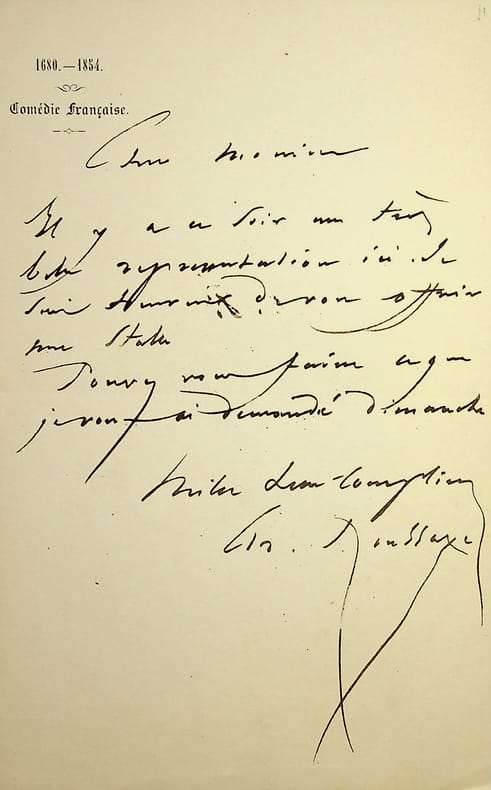 1680.—1854.
Comédie Française.
Cher Monsieur
Il y a ce soir une très
belle représentation ici. Je
suis heureux de vous offrir
une stalle
Pouvez vous faire ce que
je vous ai demandé dimanche
Mille bons compliments
Ar. Houssaye